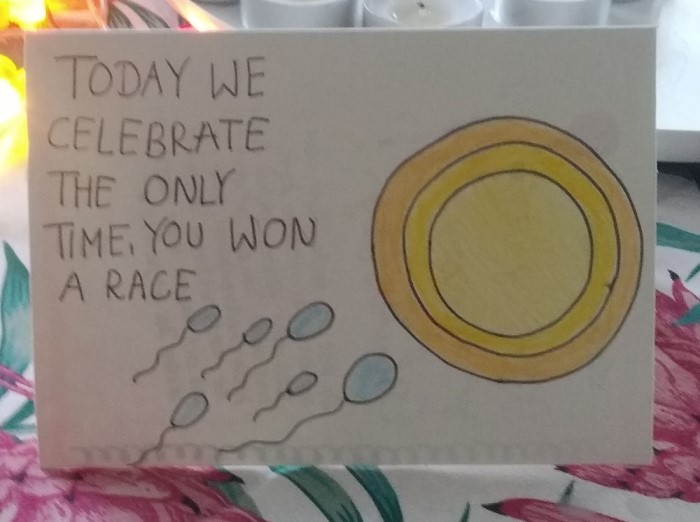 TODAY WE
CELEBRATE
THE ONLY
TIME, YOU WON
A RACE